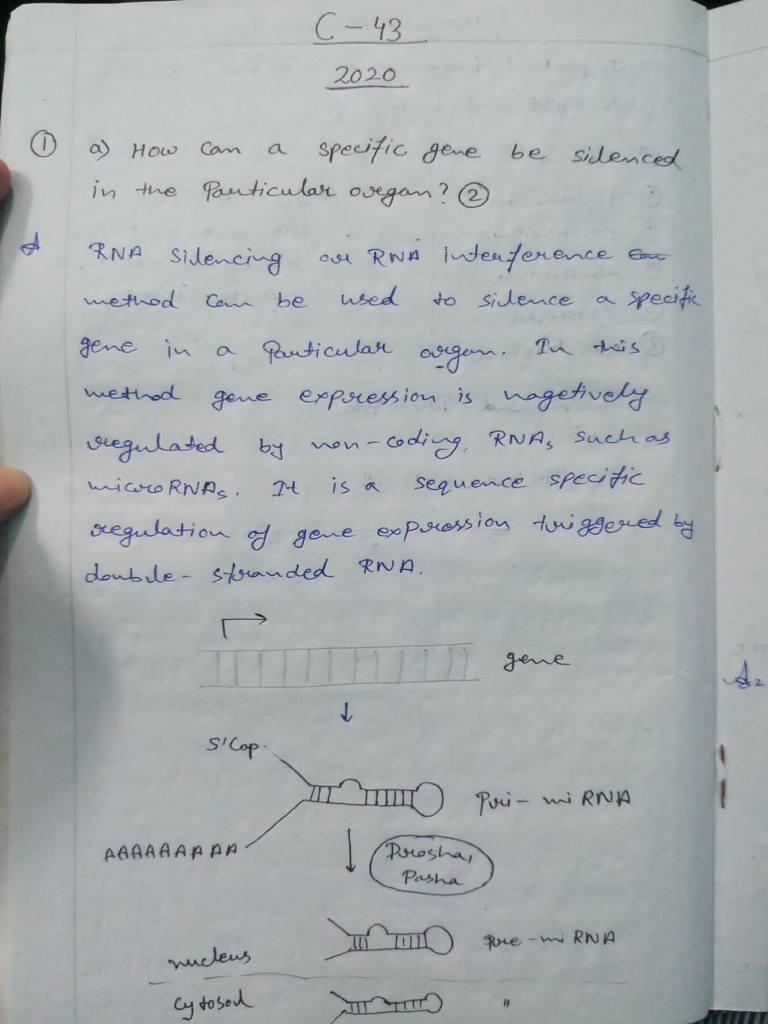 C-43
2020
① a) How can a specific gene be silenced
in the Particular organ? ②
A RNA Silencing or RNA interference
method can be used to silence a specific
gene in a Particular organ. In this
method gene expression is nagetively
regulated by non-coding RNAs such as
microRNAs. It is a sequence specific
regulation of gene expression triggered by
double-stranded RNA.
gene
5'Cap
Pri-miRNA
AAAAAAAAA
Drosha,
Pasha
Pre-miRNA
nucleus
Cytosol "